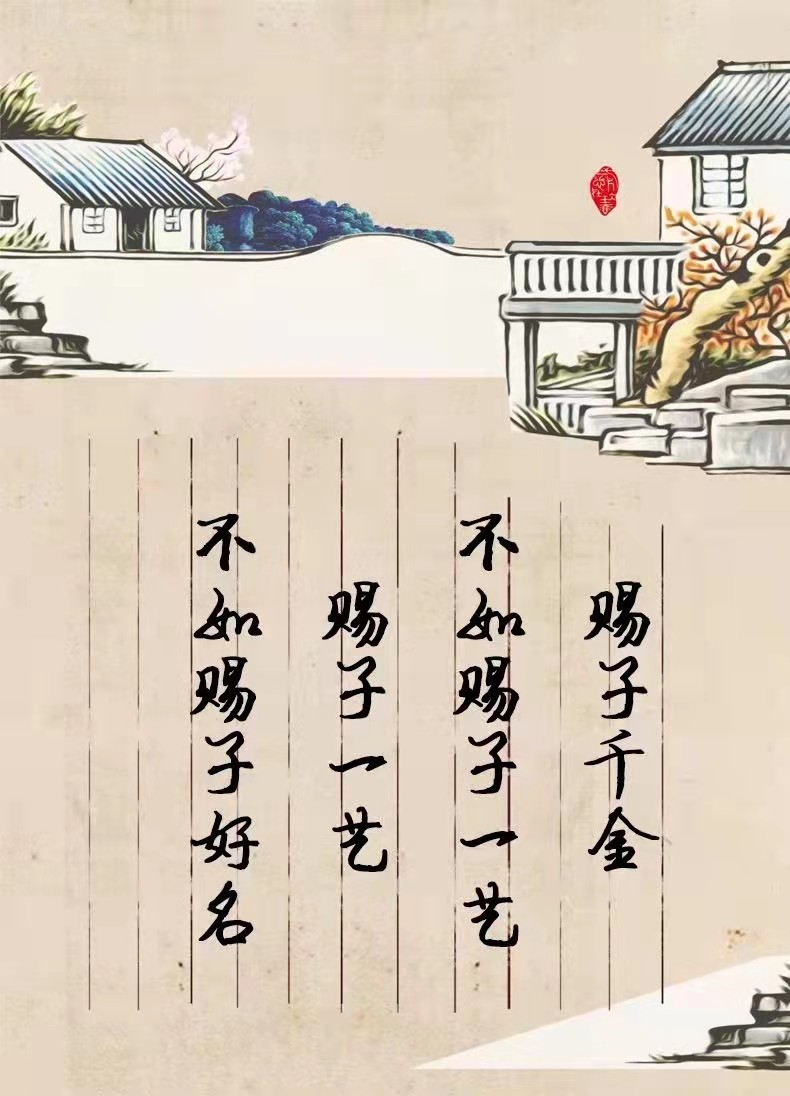 赐子千金
不如赐子一艺
赐子一艺
不如赐子好名